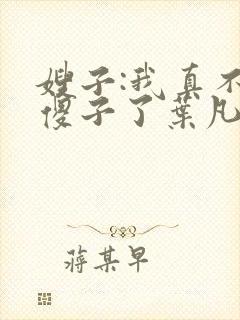 嫂子:我真不
傻子了葉凡
蔣某早